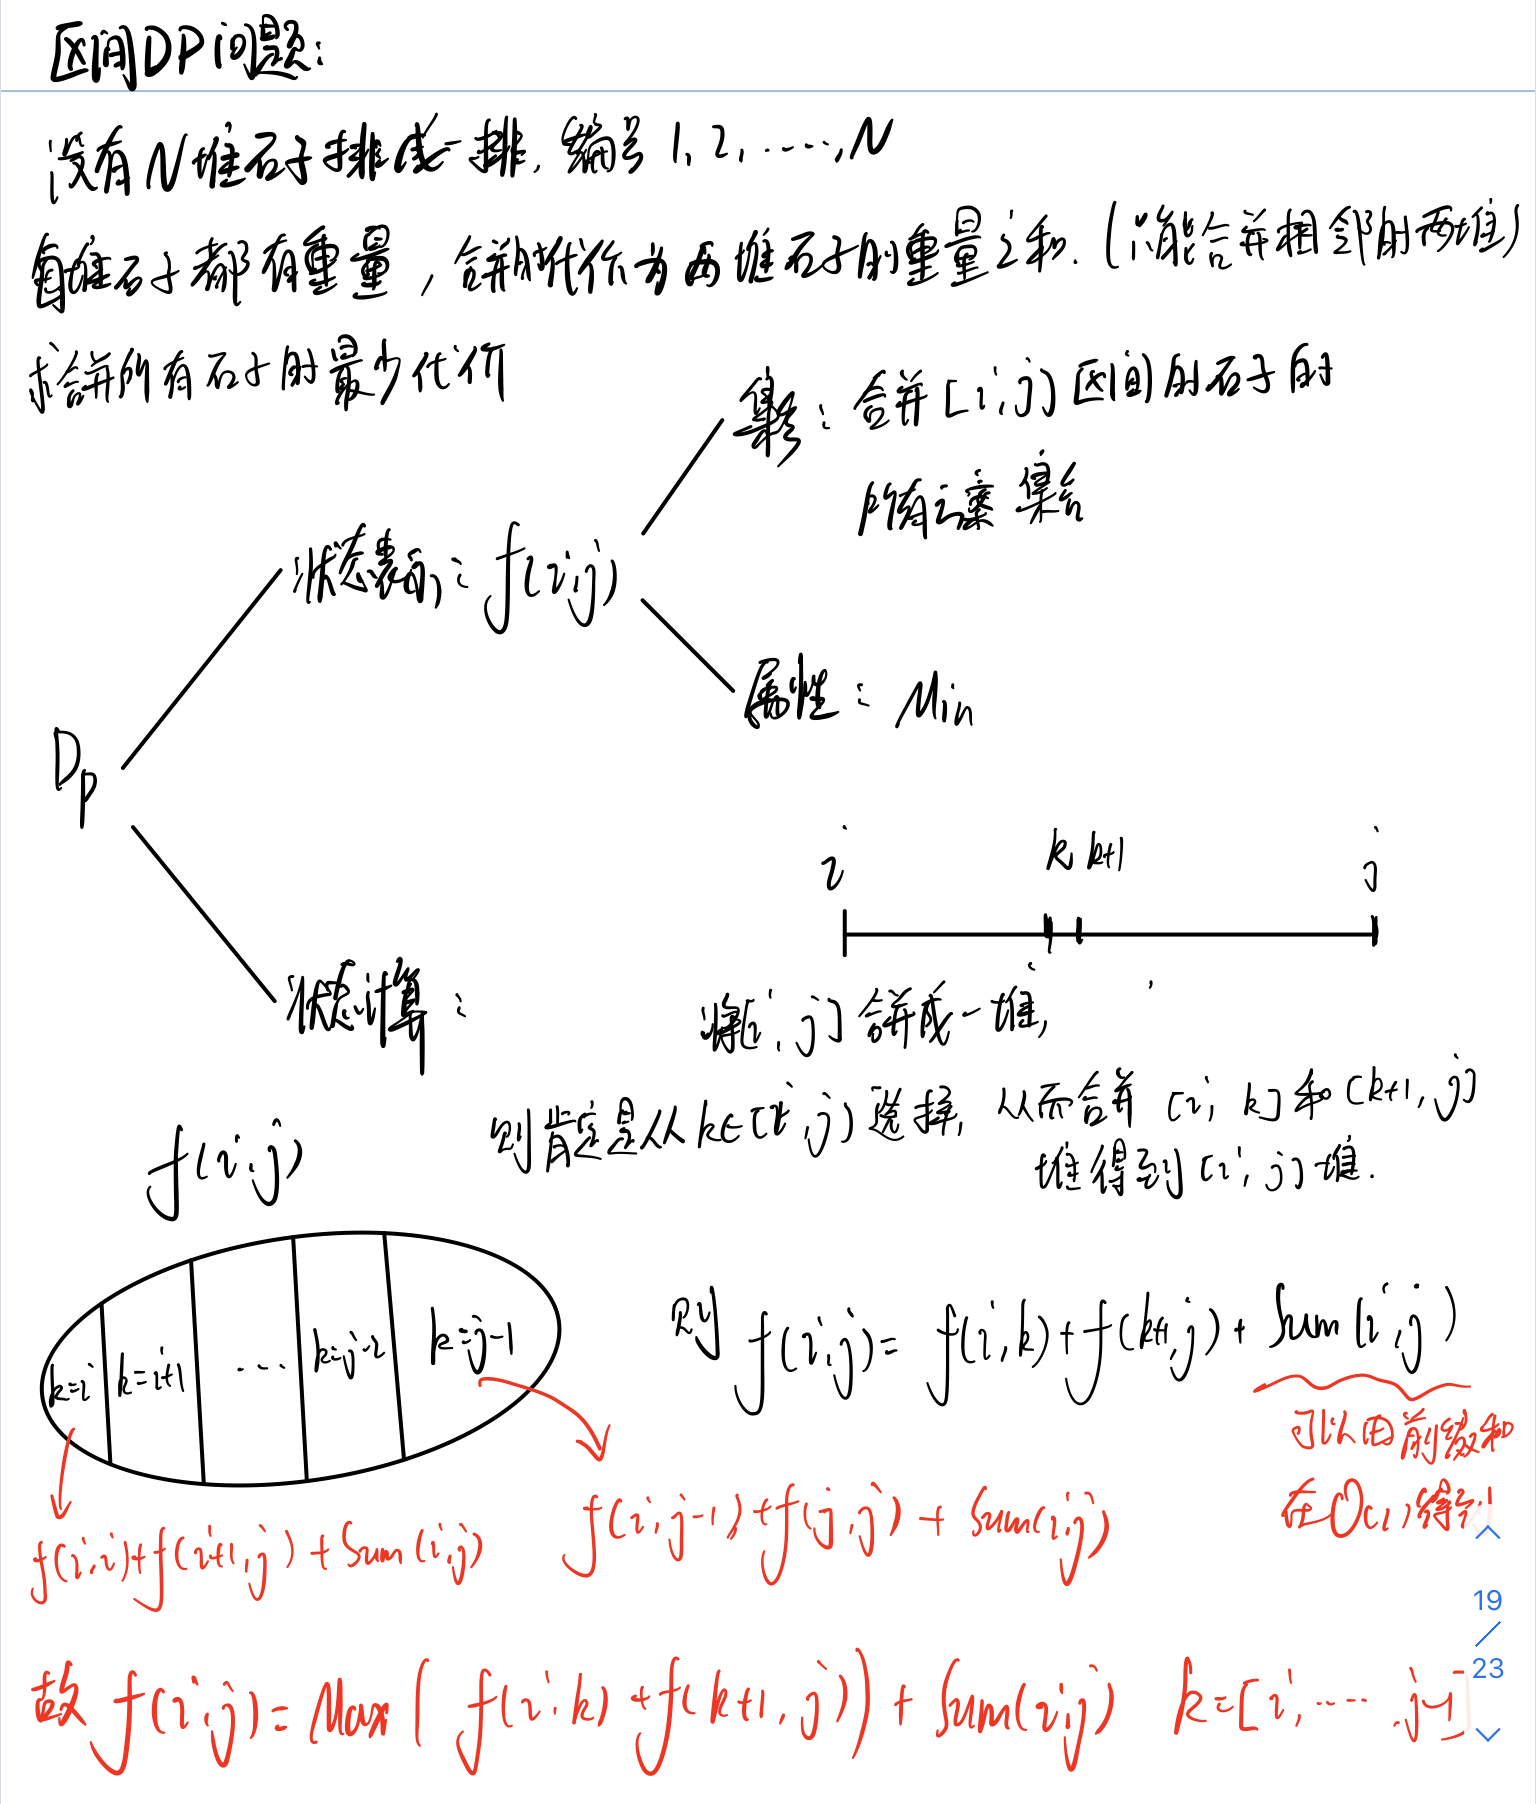 区间DP问题:
设有N堆石子排成一排, 编号 1, 2, ....., N
每堆石子都有重量, 合并时代价为两堆石子的重量之和. (只能合并相邻的两堆)
求合并所有石子的最少代价
集合: 合并[i,j]区间的石子的
所有方案集合
状态表示: f(i,j)
属性: Min
Dp
i k k+1 j
状态计算:
将[i,j]合并成一堆,
则肯定是从k∈[i,j)选择, 从而合并 [i, k]和[k+1, j]
堆得到[i, j]堆.
f(i,j)
k=i k=i+1 .... k=j-2 k=j-1
则 f(i,j)= f(i,k)+f(k+1,j)+ Sum(i,j)
可以由前缀和
在O(1)得到
f(i,i)+f(i+1,j)+Sum(i,j)
f(i,j-1)+f(j,j)+Sum(i,j)
故 f(i,j)= Max( f(i,k)+f(k+1,j))+Sum(i,j) k=[i,.....,j-1]
19
/
23